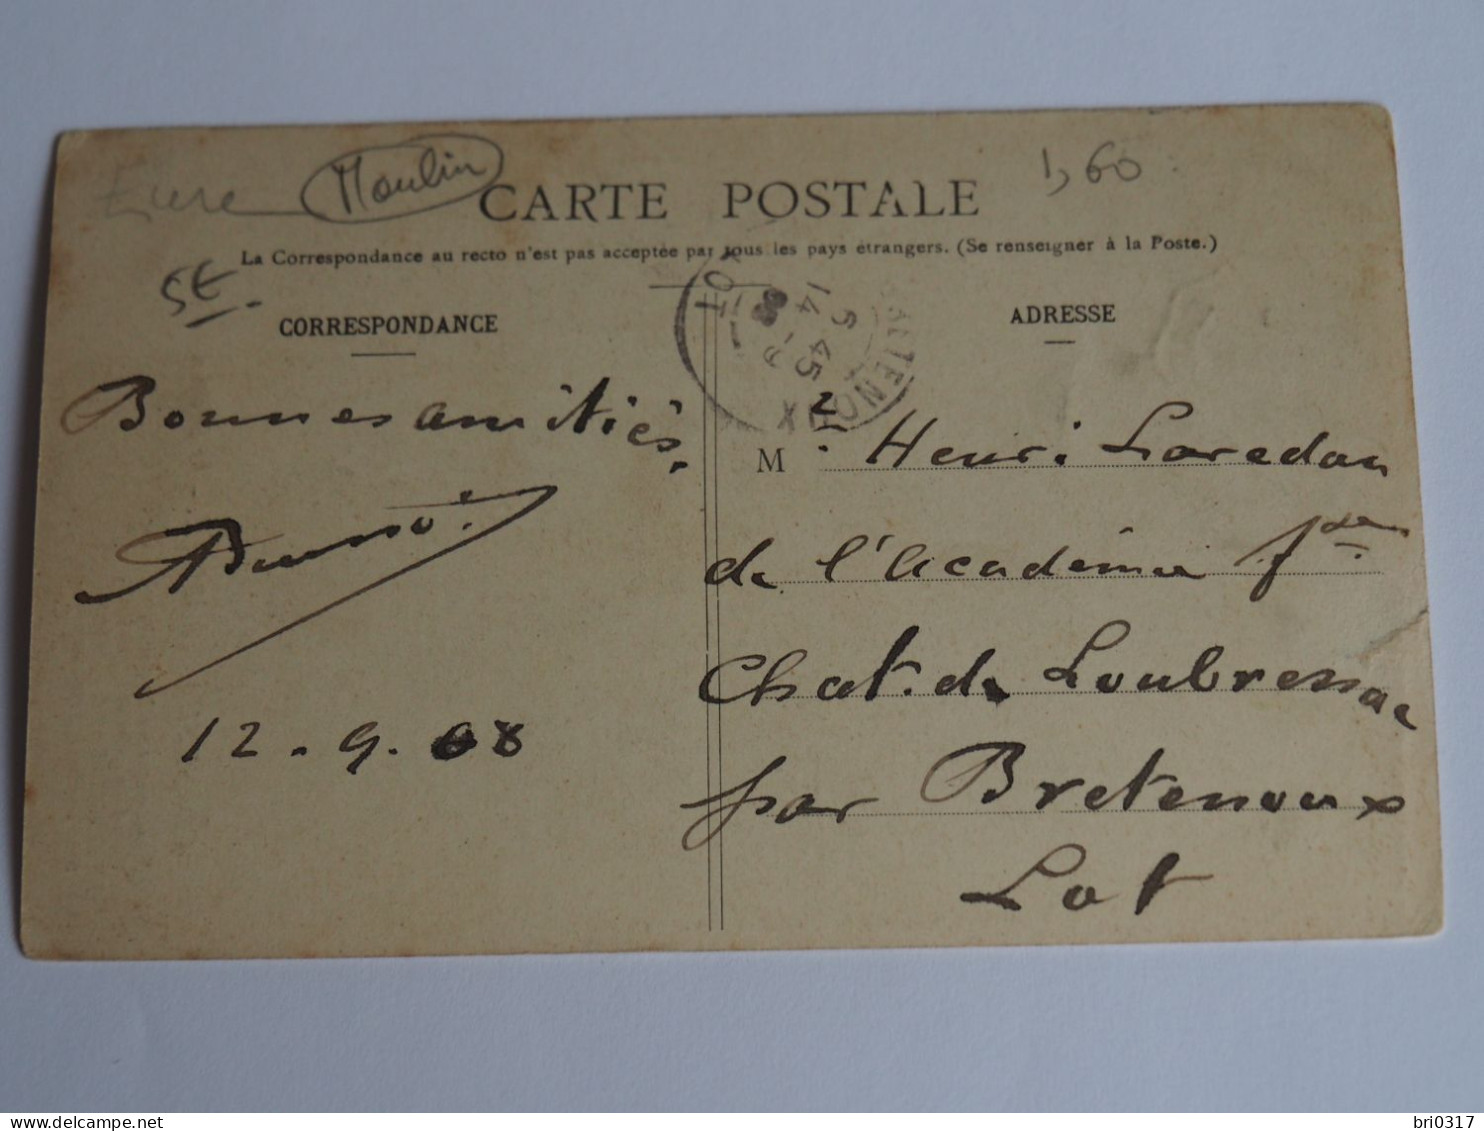 Eure Moulin
1,60
CARTE POSTALE
La Correspondance au recto n'est pas acceptée par tous les pays étrangers. (Se renseigner à la Poste.)
5€
CORRESPONDANCE
ADRESSE
LOT
14 5 45
BRETENOUX
Bonnes amitiés.
12.9.08
M r. Henri Lavedan
de l'Académie fse
Chat. de Loubressac
par Bretenoux
Lot
delcampe.net
bri0317